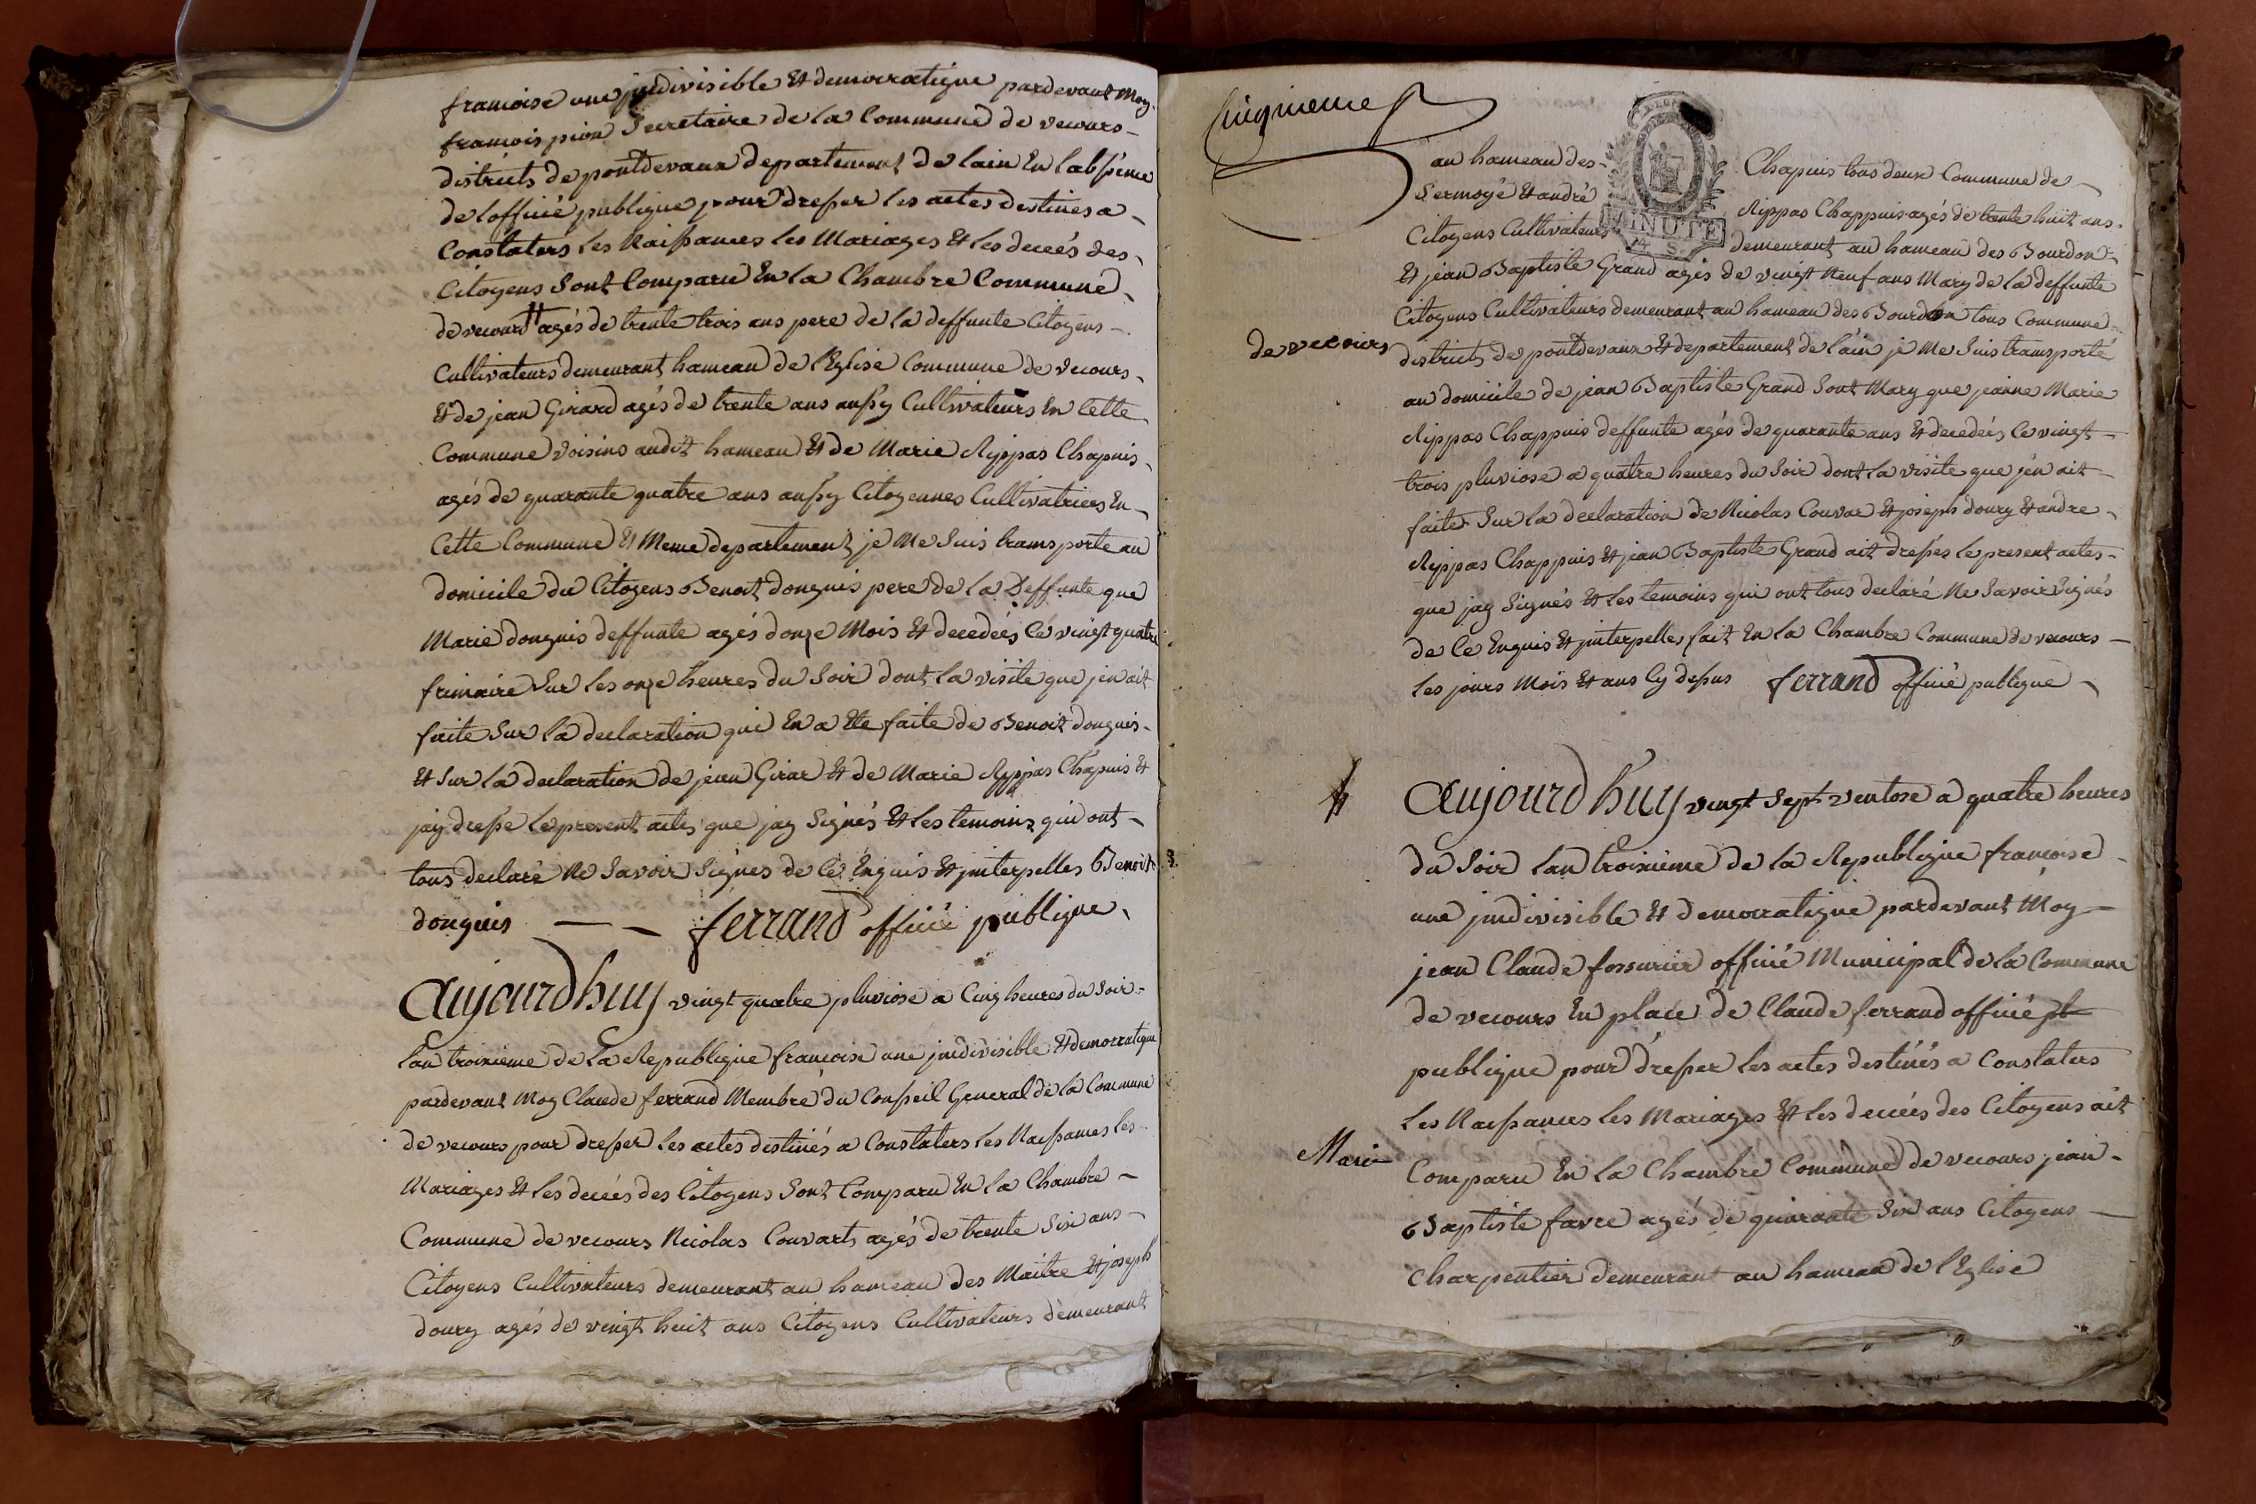 francoise une jndivisible Et democratique pardevant Moy
francois pion Secretaire de la Commune de vecours
districts de pontdevaux departement de lain En labsence
de loffice publique pour dresser les actes destines a
Constaters les Naissances les Mariages Et les decés des
Citoyens Sont Comparu En la Chambre Commune
de vecours agés de trente trois ans pere de la deffunte Citoyens
Cultivateurs demeurant hameau de l'Eglise Commune de vecours
Et de jean Girard agés de trente ans aussy Cultivateurs En Cette
Commune voisins audit hameau Et de Marie Rippas Chapuis
agés de quarante quatre ans aussy Citoyennes Cultivatrices En
Cette Commune Et Meme departement je Me Suis transporte au
domicile du Citoyens Benoit donguis pere de la Deffunte que
Marie donguis deffunte agés donze Mois Et decedeés le vingt quatre
frimaire Sur les onze heures du Soir dont la visite que jen ait
faite Sur la declaration qui En a Ete faite de Benoit donguis
Et Sur la declaration de jean Girar Et de Marie Rippas Chapuis Et
jay dresse le present actes que jay Signés Et les temoins qui ont
tous declaré Ne Savoir Signes de Ce Enquis Et jnterpelles Benoit
donguis ferrand officié publique
Aujourdhuy vingt quatre pluviose a Cinq heures du Soir
lan troisieme de La Republique francoise une jndivisible Et democratique
pardevant Moy Claude ferrand Membre du Conseil General de la Commune
de vecours pour dresser les actes destinés a Constaters les Naissances les
Mariages Et les decés des Citoyens Sont Comparu En la Chambre
Commune de vecours Nicolas Couvarts agés de trente Six ans
Citoyens Cultivateurs demeurant au hameau des Maitre Et joseph
doury agés de vingt huit ans Citoyens Cultivateurs demeurant
Cinquieme
MINUTE
4 S.
au hameau des Chapuis tous deux Commune de
Sermoyé Et andré Rippas Chappuis agés de trente huit ans
Citoyens Cultivateurs demeurant au hameau des Bourdon
Et jean Baptiste Grand agés de vingt Neuf ans Mary de la deffunte
Citoyens Cultivateurs demeurant au hameau des Bourdon tous Commune
de vecours
districts de pontdevaux Et departement de lain je Me Suis transporté
au domicile de jean Baptiste Grand Sont Mary que jeanne Marie
Rippas Chappuis deffunte agés de quarante ans Et decedeés le vingt
trois pluviose a quatre heures du Soir dont la visite que jen ait
faites Sur la declaration de Nicolas Couvar Et joseph doury Et andre
Rippas Chappuis Et jean Baptiste Grand ait dresses le present actes
que jay Signés Et les temoins qui ont tous declaré Ne Savoir Signés
de Ce Enquis Et jnterpelles fait En la Chambre Commune de vecours
les jours Mois Et ans Cy dessus ferrand officié publique
Aujourdhuy vingt Sept ventose a quatre heures
du Soir lan troisieme de la Republique francoise
une jndivisible Et democratique pardevant Moy
jean Claude officié Municipal de la Commune
de vecours En place de Claude ferrand officié
publique pour dresser les actes destinés a Constaters
Les Naissances les Mariages Et les decés des Citoyens ait
Comparu En la Chambre Commune de vecours jean
Mari
Baptiste favre agés de quarante Six ans Citoyens
Charpentier demeurant au hameau de l'Eglise